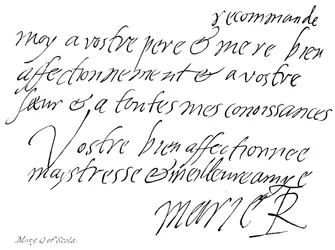 recommande
moy a vostre pere & mere bien
affectionnement & a vostre
sœur & a toutes mes conoissances
Vostre bien affectionnee
maystresse & meilleure amye
Marie R
Mary Q of Scots.